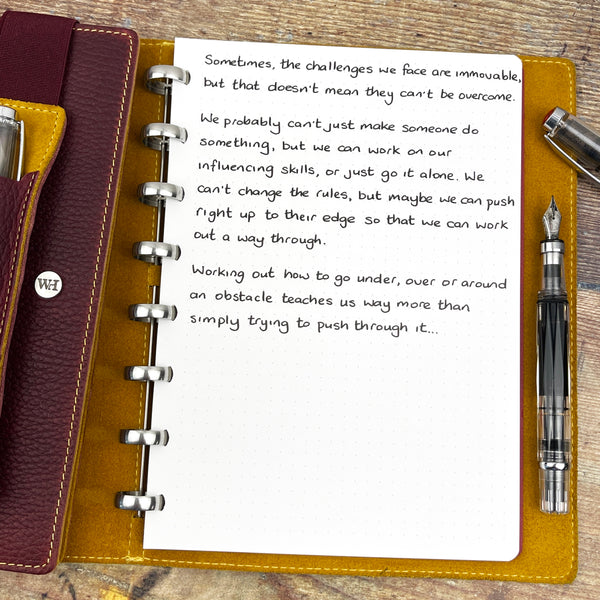 Sometimes, the challenges we face are immovable,
but that doesn't mean they can't be overcome.
We probably can't just make someone do
something, but we can work on our
influencing skills, or just go it alone. We
can't change the rules, but maybe we can push
right up to their edge so that we can work
out a way through.
Working out how to go under, over or around
an obstacle teaches us way more than
simply trying to push through it...
WH